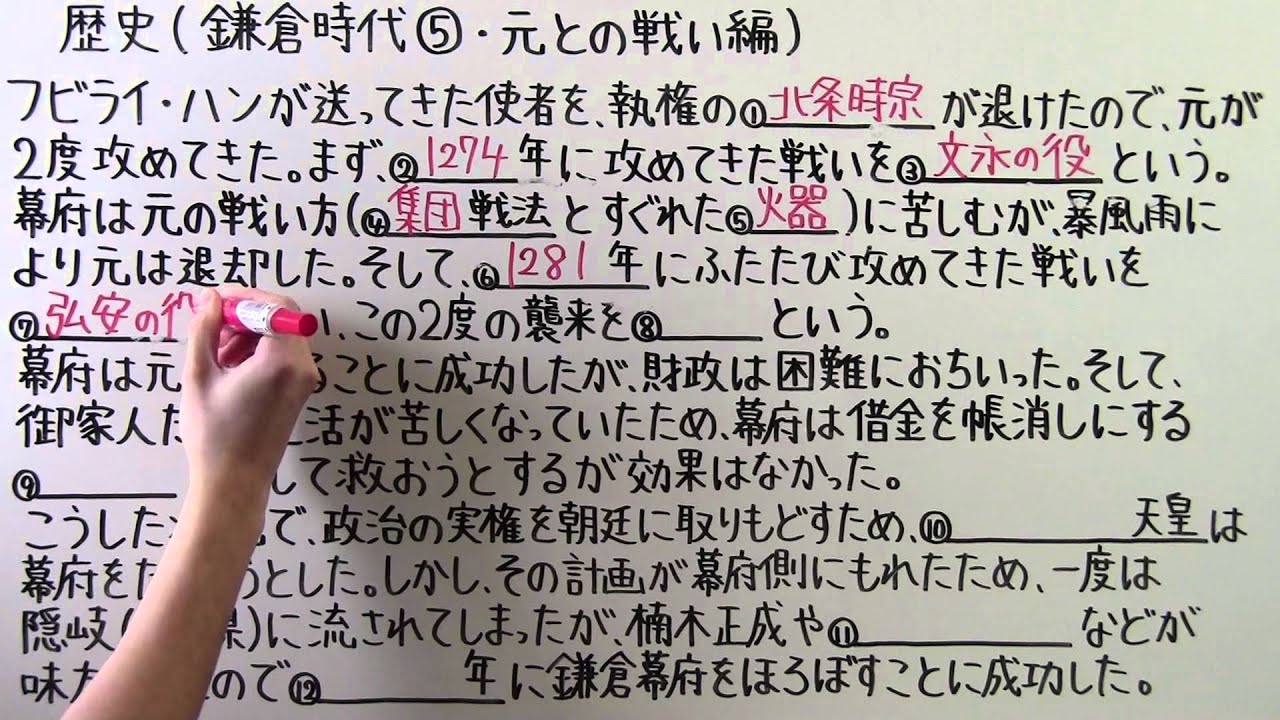 歴史(鎌倉時代⑤・元との戦い編)
フビライ・ハンが送ってきた使者を、執権の①北条時宗が退けたので、元が
2度攻めてきた。まず、②1274年に攻めてきた戦いを③文永の役という。
幕府は元の戦い方(④集団戦法とすぐれた⑤火器)に苦しむが、暴風雨に
より元は退却した。そして、⑥1281年にふたたび攻めてきた戦いを
⑦弘安の役い、この2度の襲来を⑧という。
幕府は元ることに成功したが、財政は困難におちいった。そして、
御家人た活が苦しくなっていたため、幕府は借金を帳消しにする
⑨して救おうとするが効果はなかった。
こうしたで、政治の実権を朝廷に取りもどすため、⑩天皇は
幕府をうとした。しかし、その計画が幕府側にもれたため、一度は
隠岐(県)に流されてしまったが、楠木正成や⑪などが
味方ので⑫年に鎌倉幕府をほろぼすことに成功した。